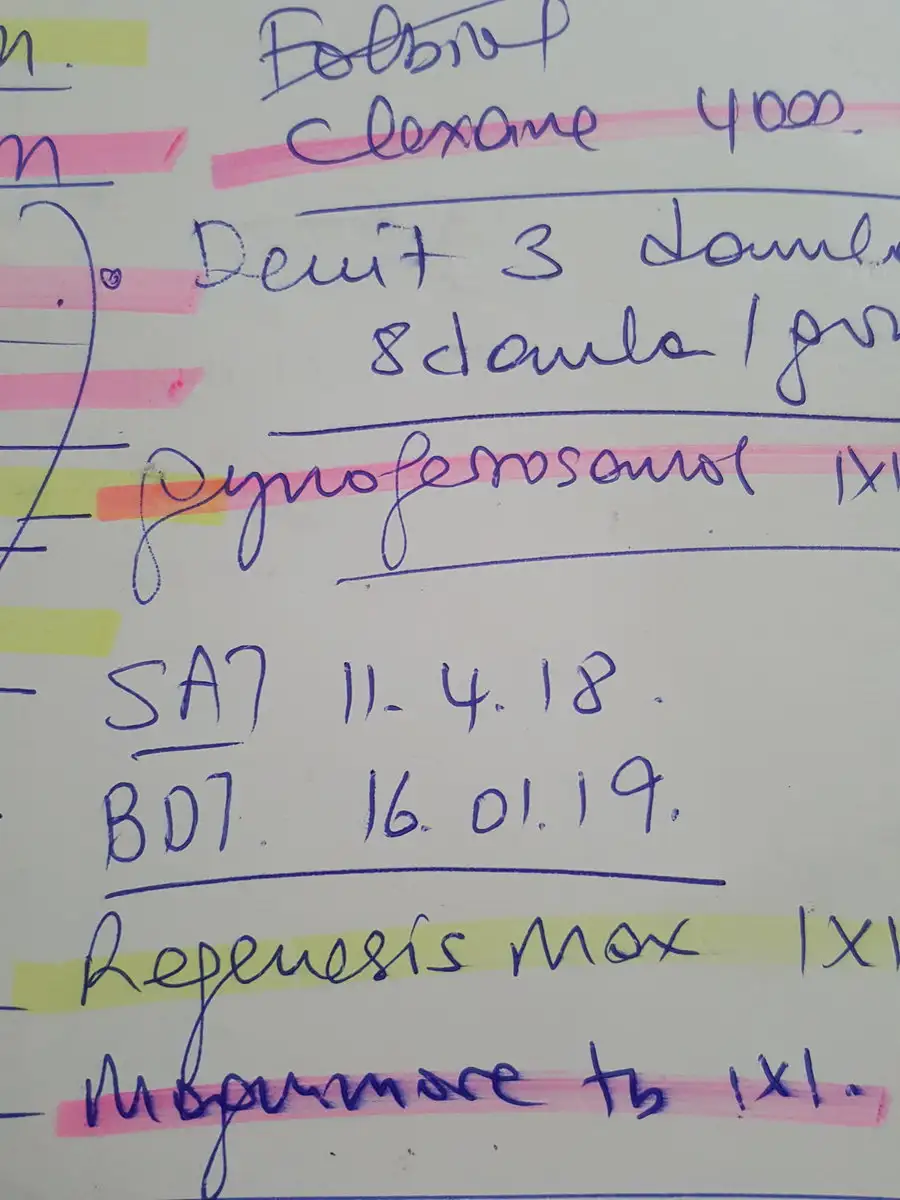 n.
Folbiol
n
Clexane 4000.
Devit 3 damla
8 damla / gün
gynoferrosanol 1x1
SAT 11.4.18.
BDT. 16.01.19.
Regenesis Max 1x1
Magnumore tb 1x1.